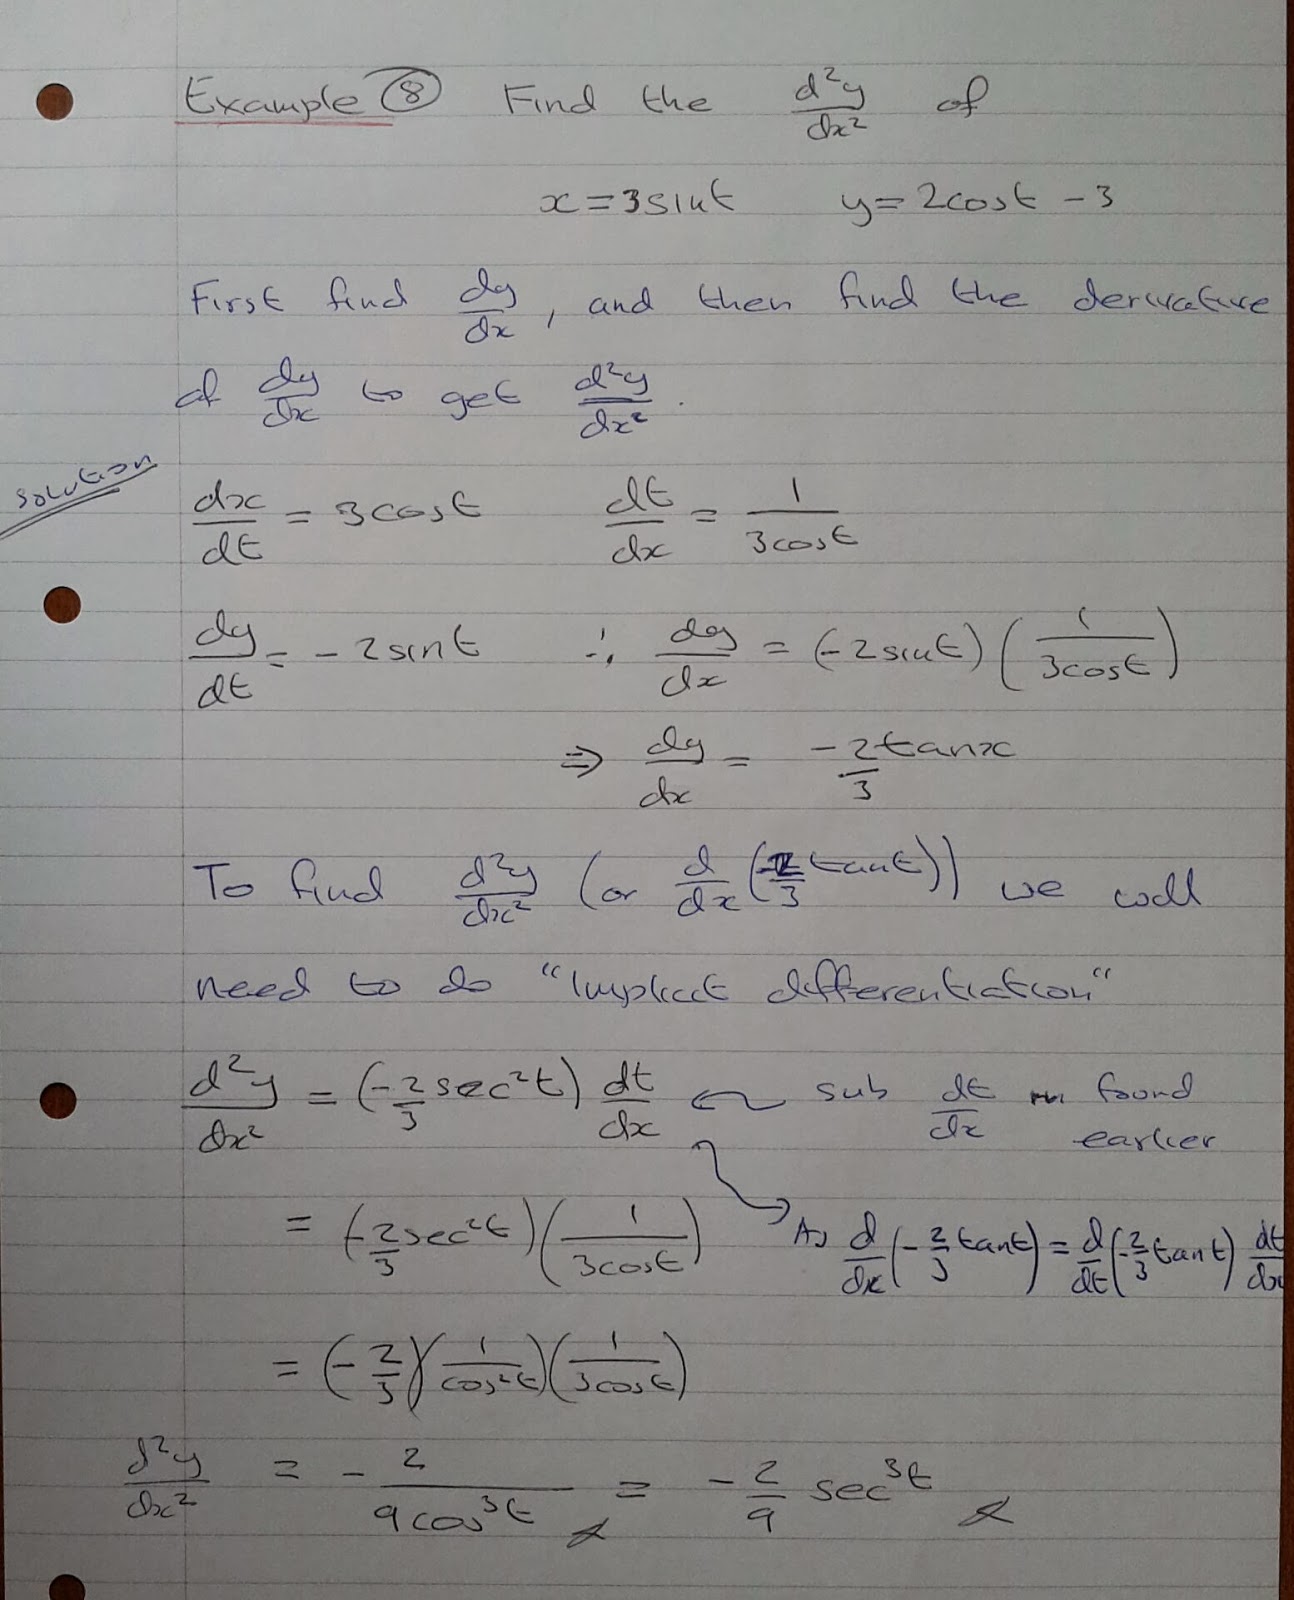 Example ⑧ Find the d²y/dx² of
x = 3sint y = 2cost - 3
First find dy/dx, and then find the derivative
of dy/dx to get d²y/dx².
Solution
dx/dt = 3cost dt/dx = 1/(3cost)
dy/dt = -2sint ∴ dy/dx = (-2sint)(1/(3cost))
⇒ dy/dx = -2/3 tanx
To find d²y/dx² (or d/dx(-2/3 tant)) we will
need to do "Implicit differentiation"
d²y/dx² = (-2/3 sec²t) dt/dx ← sub dt/dx found
earlier
= (-2/3 sec²t)(1/(3cost)) → As d/dx(-2/3 tant) = d/dt(-2/3 tant) dt/dx
= (-2/3)(1/cos²t)(1/(3cost))
d²y/dx² = -2/(9cos³t) = -2/9 sec³t